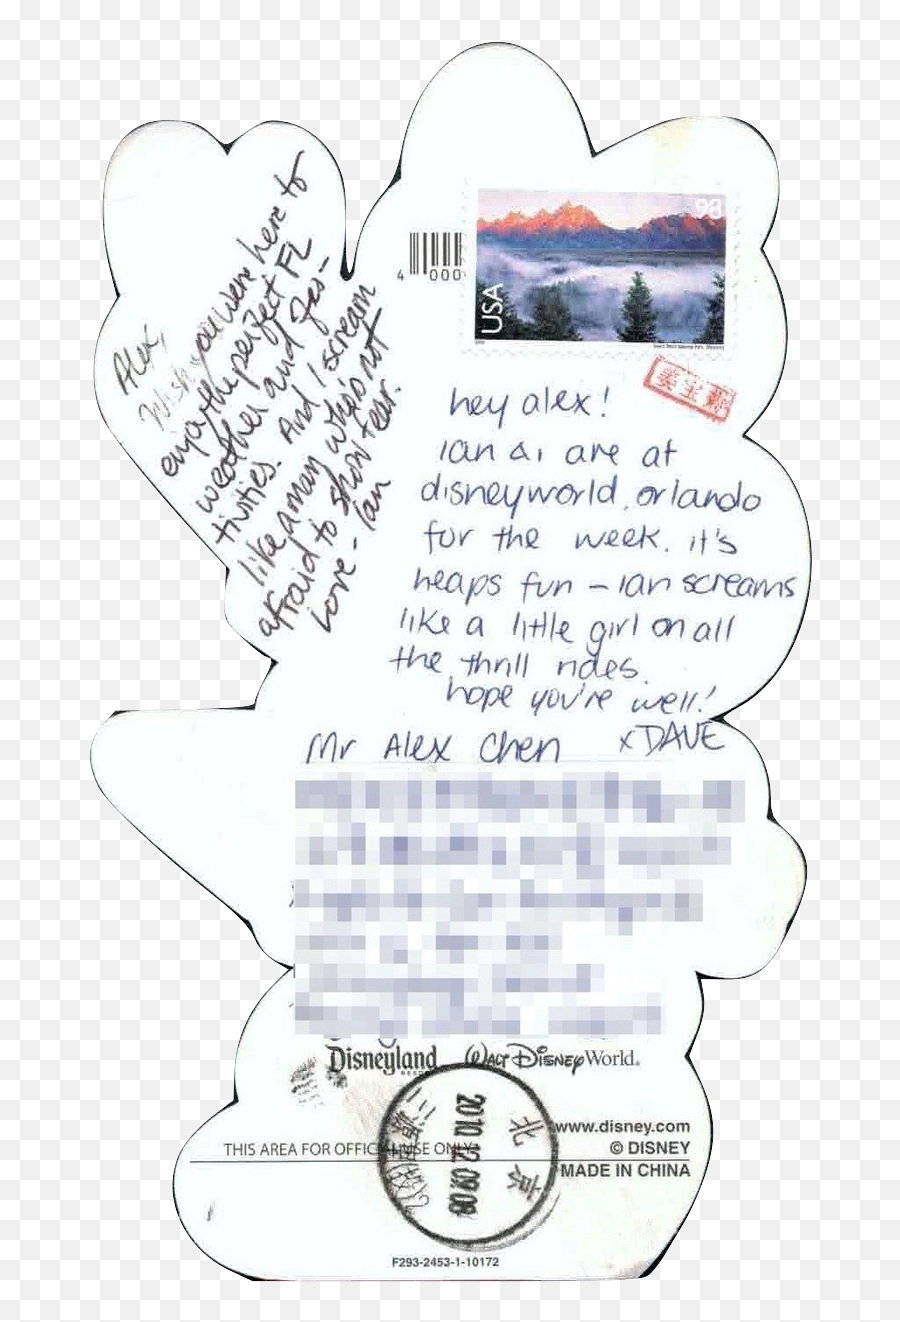 Alex,
Wish you were here to
enjoy the perfect FL
weather and fes-
tivities. And I scream
like a man who's not
afraid to show fear.
Love - Ian
4 000
98
USA
hey alex!
ian & i are at
disneyworld, orlando
for the week. it's
heaps fun - ian screams
like a little girl on all
the thrill rides.
hope you're well!
x DAVE
Mr Alex Chen
Disneyland
WALT DISNEY World.
THIS AREA FOR OFFICIAL USE ONLY
www.disney.com
© DISNEY
MADE IN CHINA
北京
2010.12.09.08
F293-2453-1-10172